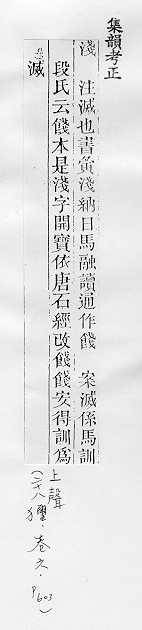 集韻考正
淺　注滅也書寅淺納日馬融讀通作餞　案滅係馬訓
段氏云餞本是淺字開寶依唐石經改餞餞安得訓爲
滅
上聲
(二十八獮·卷六·P603)